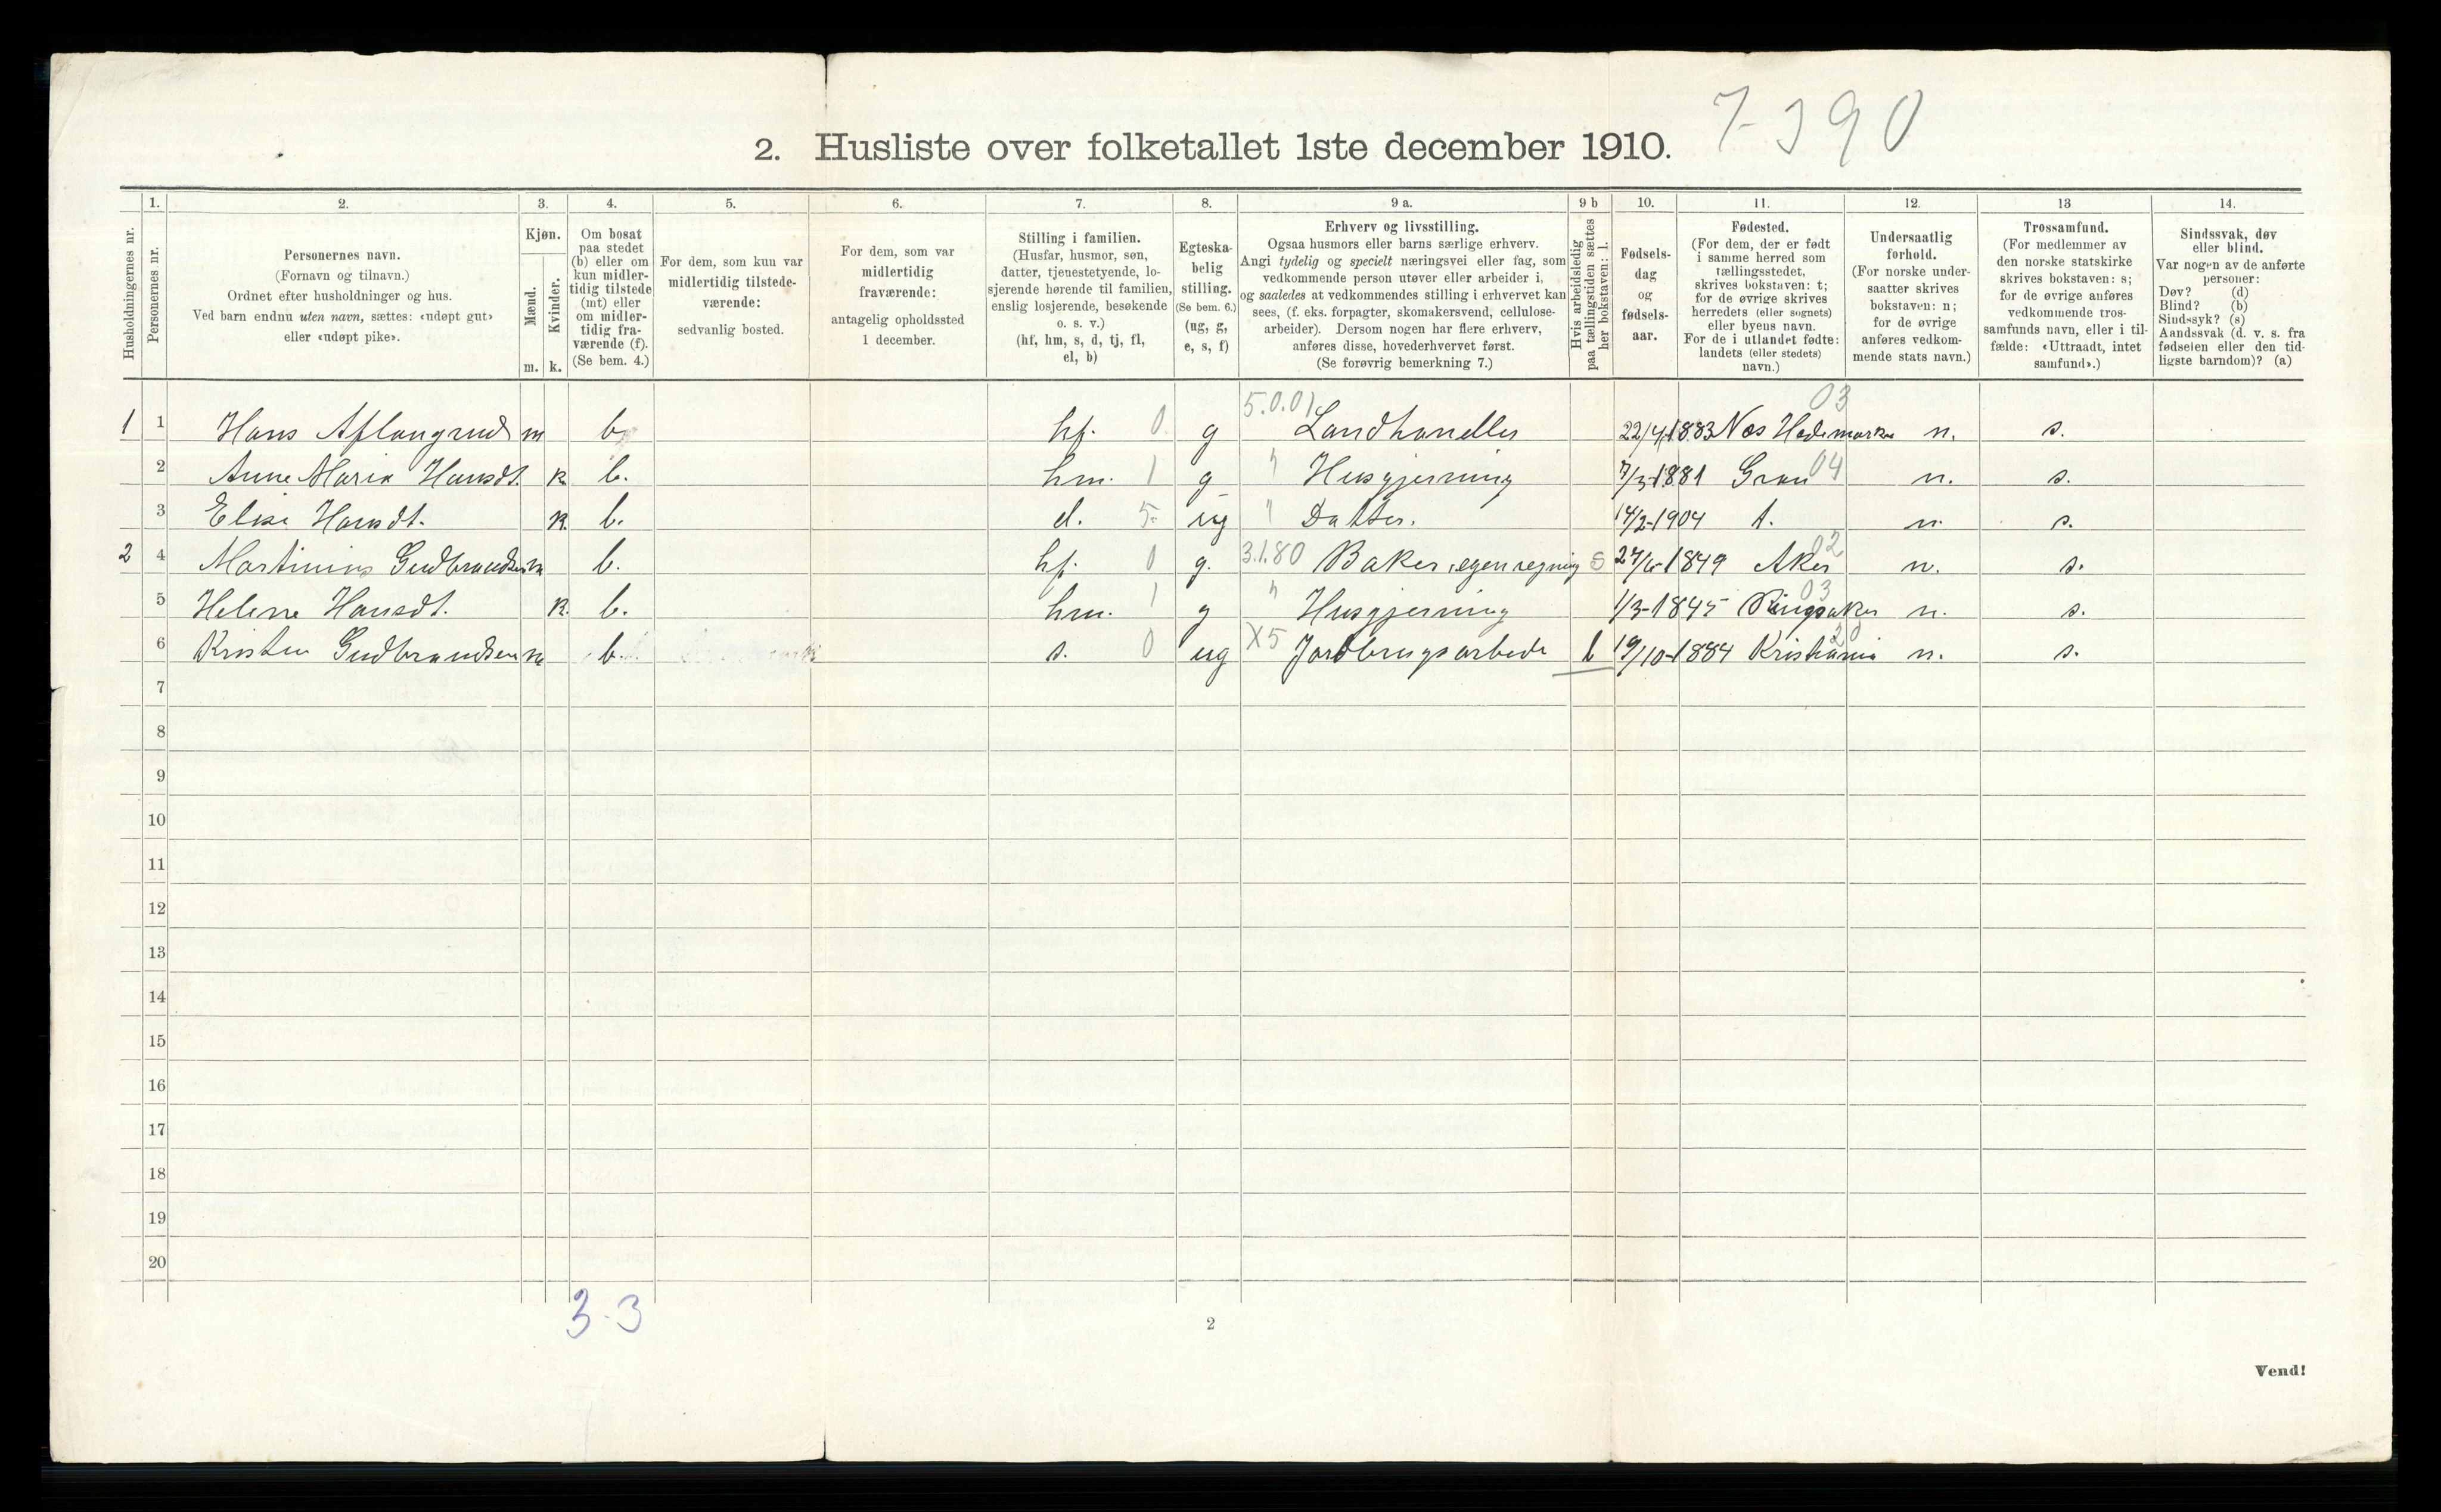 7-390
2. Husliste over folketallet 1ste december 1910.
1. 2. 3. 4. 5. 6. 7. 8. 9 a. 9 b 10. 11. 12. 13 14.
Husholdningernes nr.
Personernes nr.
Personernes navn.
(Fornavn og tilnavn.)
Ordnet efter husholdninger og hus.
Ved barn endnu uten navn, sættes: «udøpt gut»
eller «udøpt pike».
Kjøn.
Mænd.
Kvinder.
m. k.
Om bosat
paa stedet
(b) eller om
kun midler-
tidig tilstede
(mt) eller
om midler-
tidig fra-
værende (f).
(Se bem. 4.)
For dem, som kun var
midlertidig tilstede-
værende:
sedvanlig bosted.
For dem, som var
midlertidig
fraværende:
antagelig opholdssted
1 december.
Stilling i familien.
(Husfar, husmor, søn,
datter, tjenestetyende, lo-
sjerende hørende til familien,
enslig losjerende, besøkende
o. s. v.)
(hf, hm, s, d, tj, fl,
el, b)
Egteska-
belig
stilling.
(Se bem. 6.)
(ug, g,
e, s, f)
Erhverv og livsstilling.
Ogsaa husmors eller barns særlige erhverv.
Angi tydelig og specielt næringsvei eller fag, som
vedkommende person utøver eller arbeider i,
og saaledes at vedkommendes stilling i erhvervet kan
sees, (f. eks. forpagter, skomakersvend, cellulose-
arbeider). Dersom nogen har flere erhverv,
anføres disse, hovederhvervet først.
(Se forøvrig bemerkning 7.)
Hvis arbeidsledig
paa tællingstiden sættes
her bokstaven: l.
Fødsels-
dag
og
fødsels-
aar.
Fødested.
(For dem, der er født
i samme herred som
tællingsstedet,
skrives bokstaven: t;
for de øvrige skrives
herredets (eller sognets)
eller byens navn.
For de i utlandet fødte:
landets (eller stedets)
navn.)
Undersaatlig
forhold.
(For norske under-
saatter skrives
bokstaven: n;
for de øvrige
anføres vedkom-
mende stats navn.)
Trossamfund.
(For medlemmer av
den norske statskirke
skrives bokstaven: s;
for de øvrige anføres
vedkommende tros-
samfunds navn, eller i til-
fælde: «Uttraadt, intet
samfund».)
Sindssvak, døv
eller blind.
Var nogen av de anførte
personer:
Døv? (d)
Blind? (b)
Sindssyk? (s)
Aandssvak (d. v. s. fra
fødselen eller den tid-
ligste barndom)? (a)
5.0.01 03
1 1 Hans Aflangrud m b. hf. 0 g Landhandler 22/4 1883 Nes Hedemarken n. s.
2 Anne Maria Hansdt. k b. hm. 1 g " Husgjerning 7/3-1881 Gran 04 n. s.
3 Elise Hansdt. k. b. d. 5. ug " Datter. 14/2-1904 t. n. s.
2 4 Martinius Gudbrandsen m b. hf. 0 g. 3.1.80 Baker, egen regning s 27/6-1849 Aker 02 n. s.
5 Helene Hansdt. k. b. hm. 1 g " Husgjerning 1/3-1845 Ringsaker 03 n. s.
6 Kristen Gudbrandsen m b. s. 0 ug X5 Jordbrugsarbeide l 19/10-1884 Kristiania 20 n. s.
7
8
9
10
11
12
13
14
15
16
17
18
19
20
3-3
2
Vend!